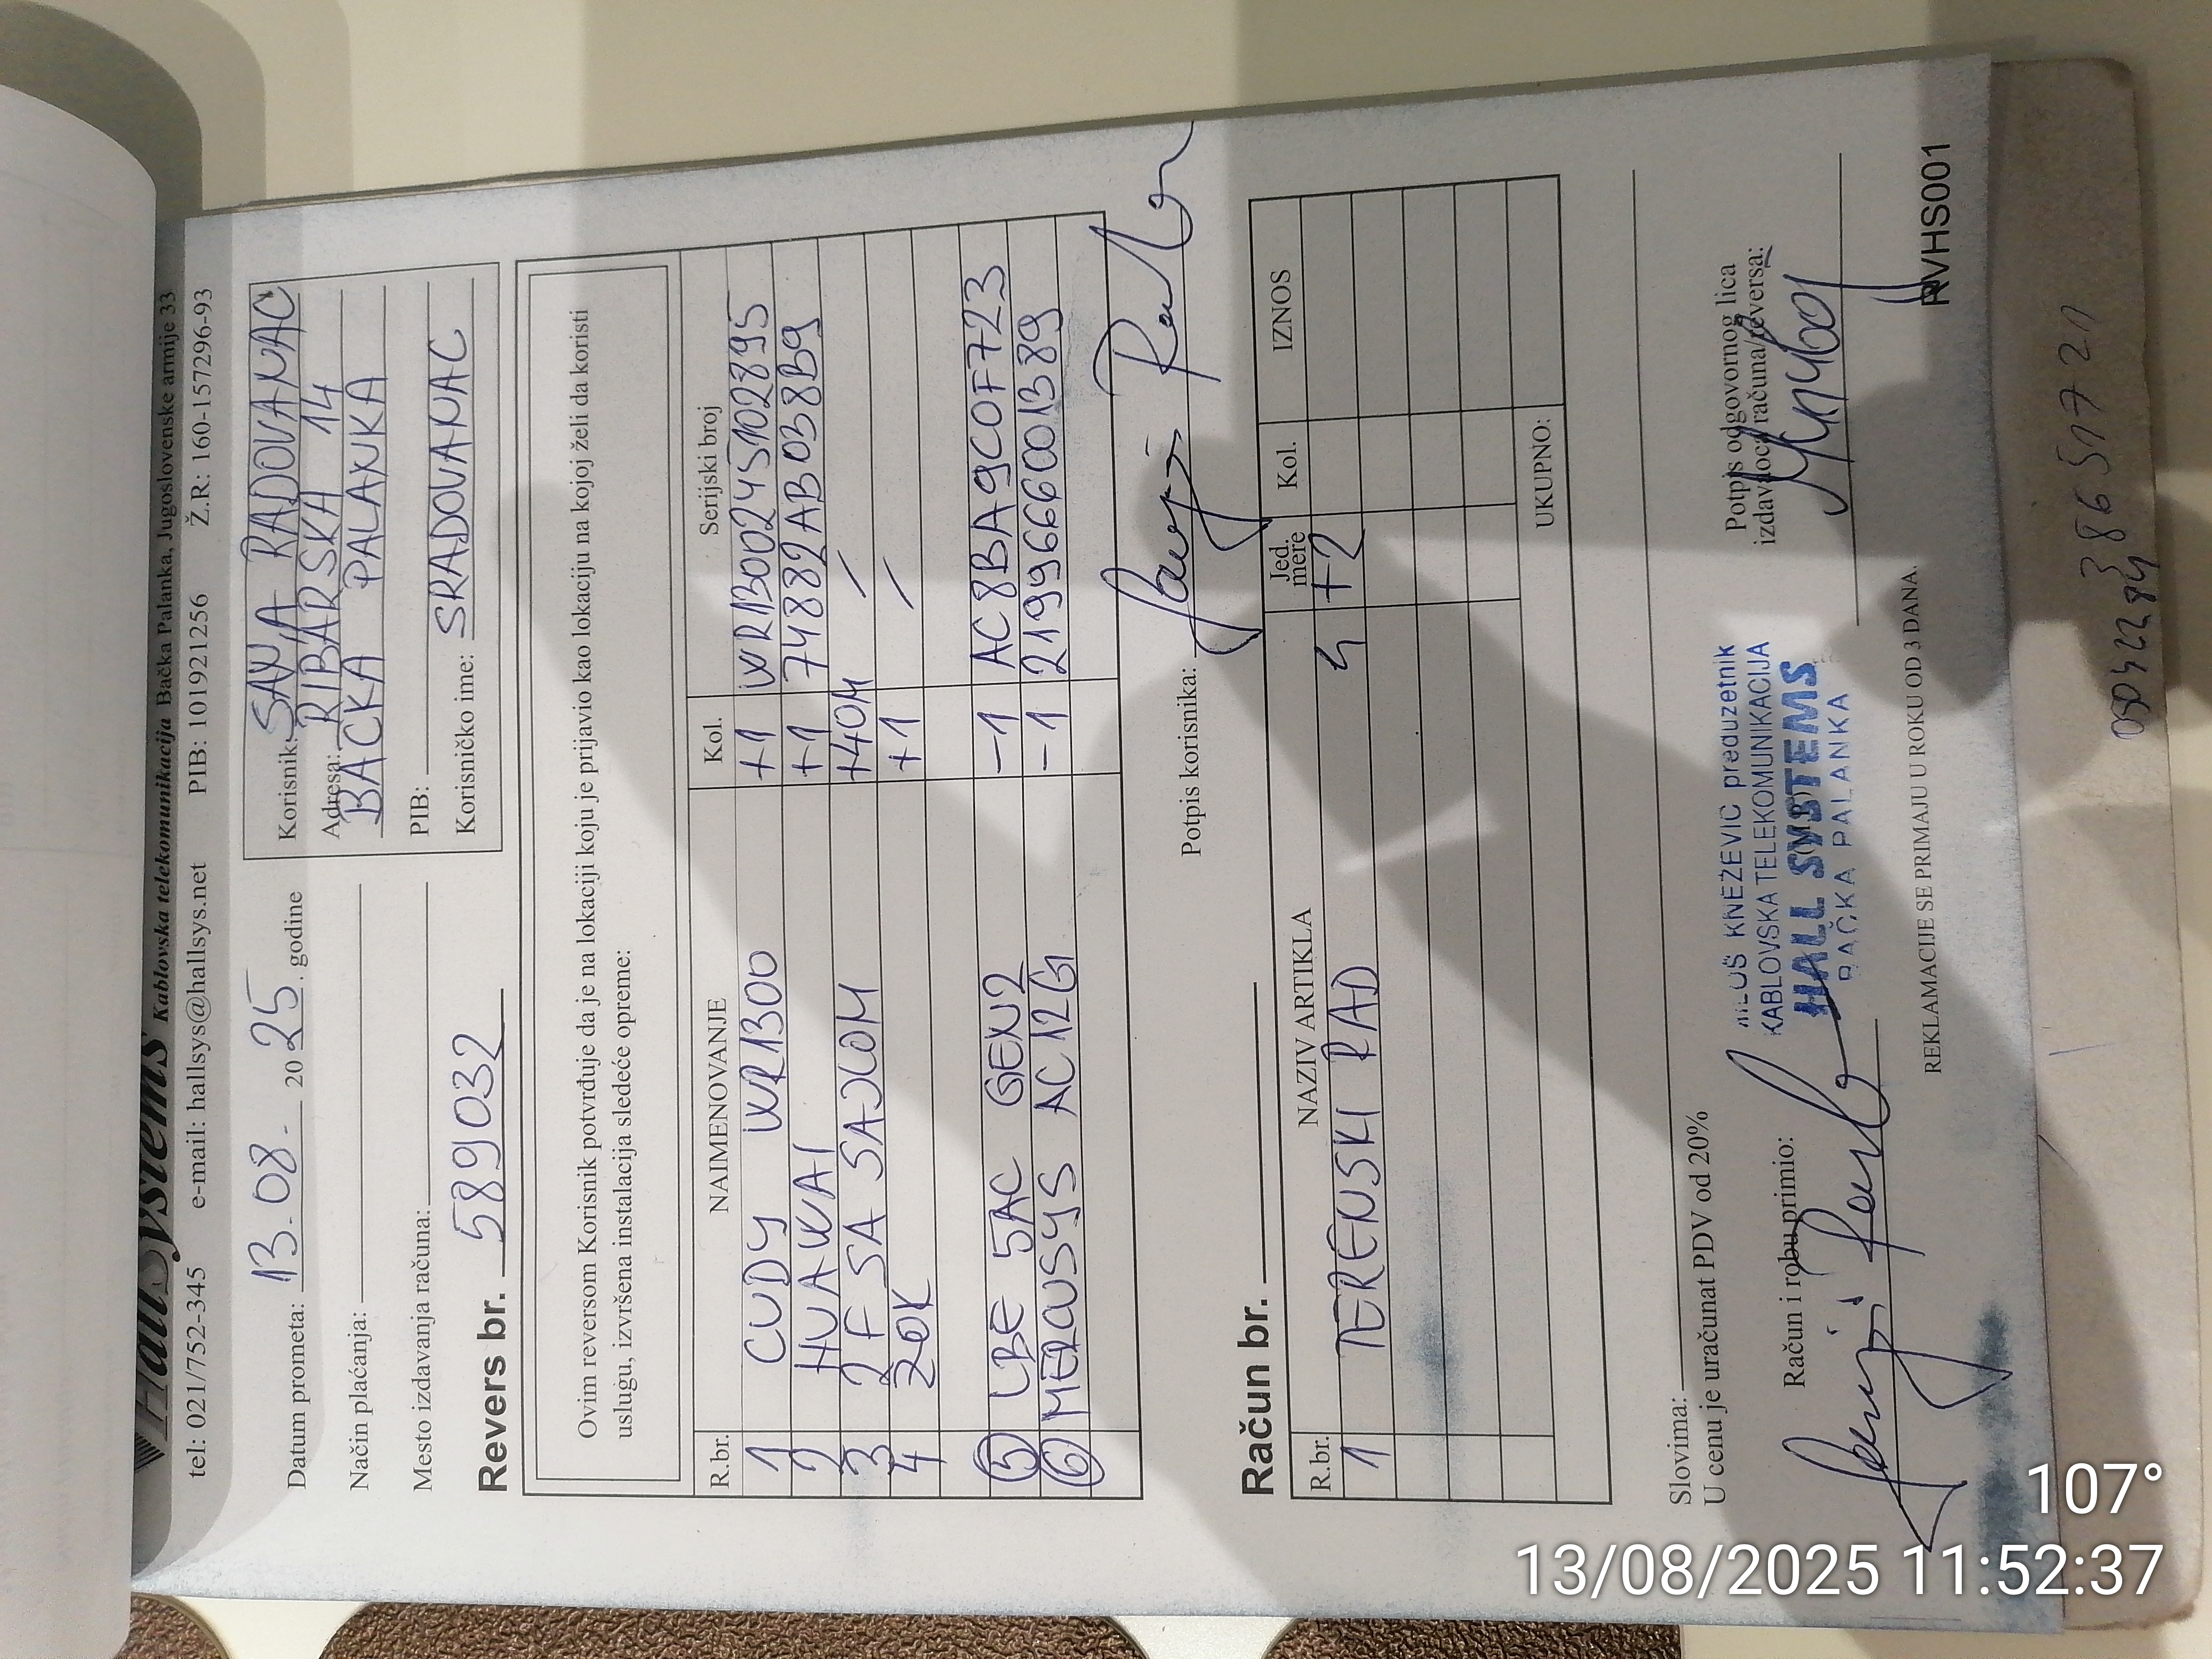 HallSystems Kablovska telekomunikacija Bačka Palanka, Jugoslovenske armije 33
tel: 021/752-345 e-mail: hallsys@hallsys.net PIB: 101921256 Ž.R: 160-157296-93
Datum prometa: 13.08. 2025. godine
Način plaćanja:
Mesto izdavanja računa:
Korisnik: SANJA RADOVANAC
Adresa: RIBARSKA 14
BACKA PALANKA
PIB:
Korisničko ime: SRADOVANAC
Revers br. 589032
Ovim reversom Korisnik potvrđuje da je na lokaciji koju je prijavio kao lokaciju na kojoj želi da koristi
uslugu, izvršena instalacija sledeće opreme:
R.br. NAIMENOVANJE Kol. Serijski broj
1 CUDY WR1300 +1 WR1300245102895
2 HUAWAI +1 74882AB038B9
3 2F SA SAJLOM +40M /
4 ZOK +1 /
5 LBE 5AC GEN2 -1 AC8BA9C0F723
6 MERCUSYS AC12G -1 2199666001389
Potpis korisnika:
Račun br.
R.br. NAZIV ARTIKLA Jed. mere Kol. IZNOS
1 TERENSKI RAD 4 +2
UKUPNO:
Slovima:
U cenu je uračunat PDV od 20%
Račun i robu primio:
MILOŠ KNEŽEVIĆ preduzetnik
KABLOVSKA TELEKOMUNIKACIJA
HALL SYSTEMS
BAČKA PALANKA
Potpis odgovornog lica
izdavaoca računa/reversa:
REKLAMACIJE SE PRIMAJU U ROKU OD 3 DANA.
RVHS001
107°
13/08/2025 11:52:37